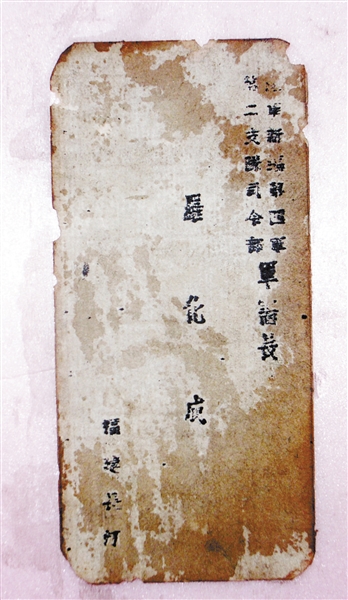 陸軍新編第四軍
第二支隊司令部
軍長
羅化成
福建長汀